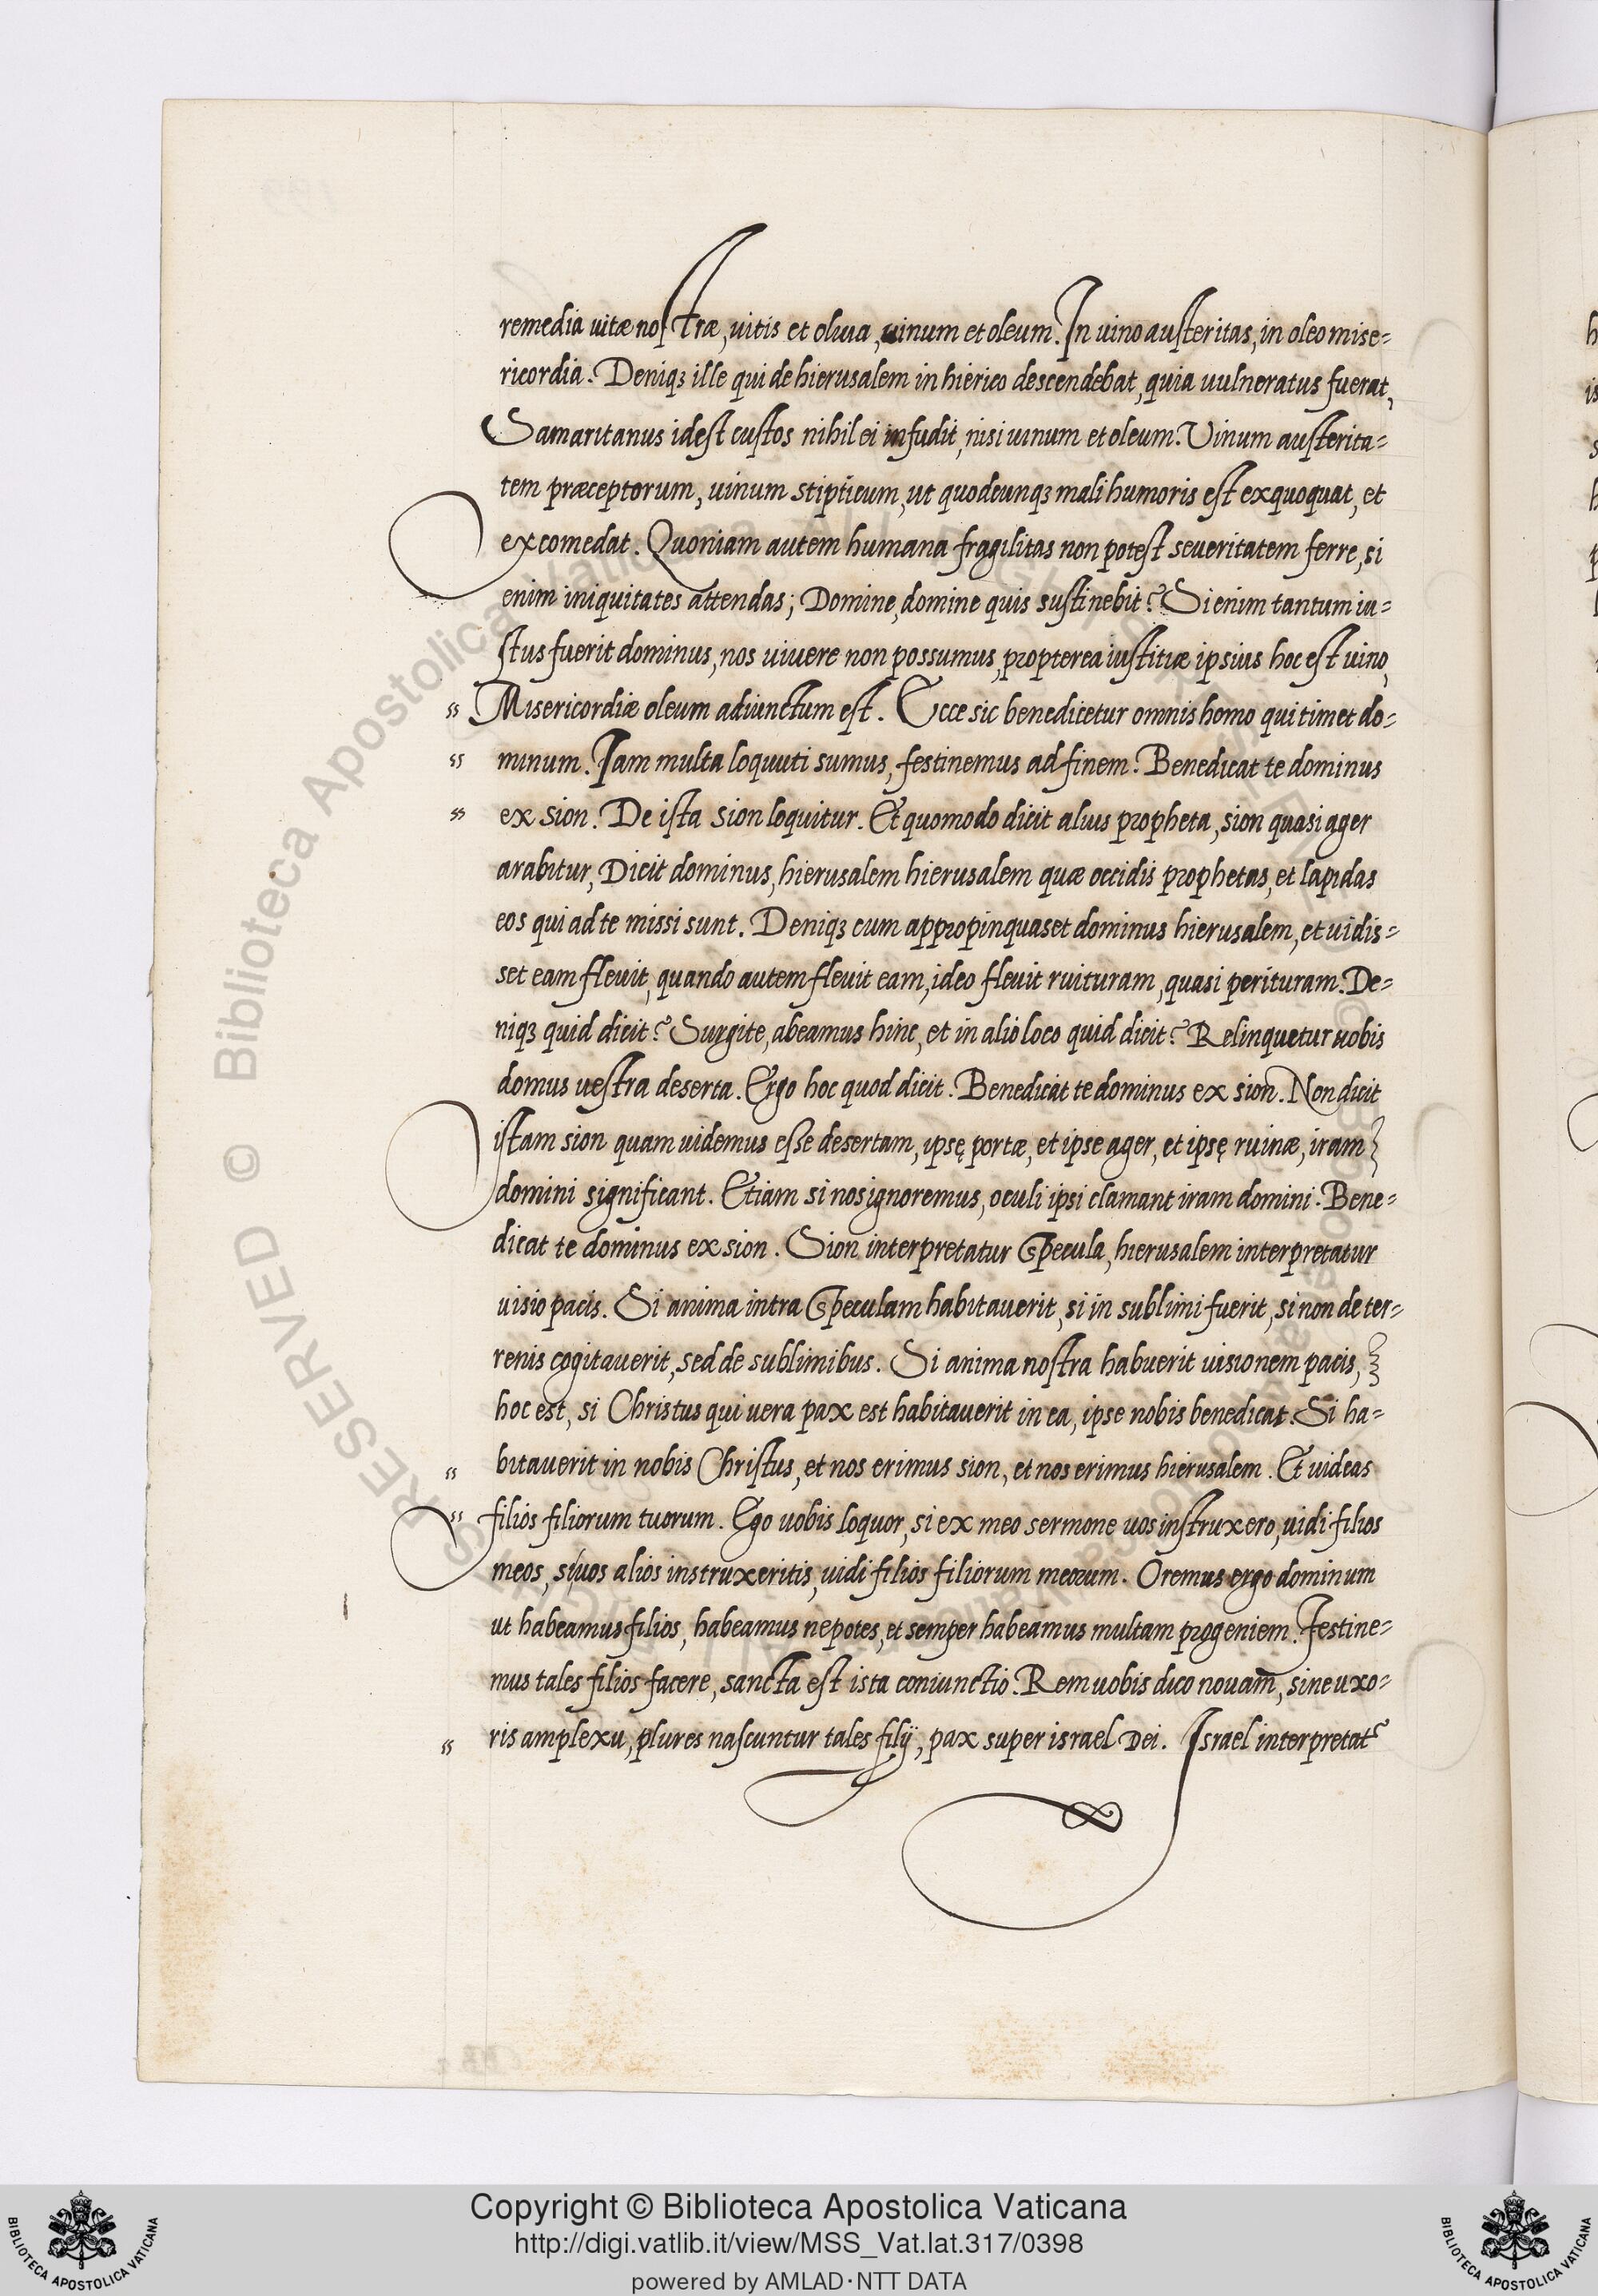 remedia uitæ nostræ, uitis et oliua, uinum et oleum. In uino austeritas, in oleo mise=
ricordia. Deniqȝ ille qui de hierusalem in hierico descendebat, quia uulneratus fuerat,
Samaritanus idest custos nihil ei infudit, nisi uinum et oleum. Vinum austerita=
tem præceptorum, uinum stipticum, ut quodcunqȝ mali humoris est exquoquat, et
excomedat. Quoniam autem humana fragilitas non potest seueritatem ferre, si
enim iniquitates attendas; Domine, domine quis sustinebit? Si enim tantum iu=
stus fuerit dominus, nos uiuere non possumus, propterea iustitiæ ipsius hoc est uino,
" Misericordiæ oleum adiunctum est. Ecce sic benedicetur omnis homo qui timet do=
" minum. Iam multa loquuti sumus, festinemus ad finem. Benedicat te dominus
" ex sion. De ista sion loquitur. Et quomodo dicit alius propheta, sion quasi ager
arabitur, Dicit dominus, hierusalem hierusalem quæ occidis prophetas, et lapidas
eos qui ad te missi sunt. Deniqȝ cum appropinquaset dominus hierusalem, et uidis=
set eam fleuit, quando autem fleuit eam, ideo fleuit ruituram, quasi perituram. De=
niqȝ quid dicit? Surgite, abeamus hinc, et in alio loco quid dicit? Relinquetur uobis
domus uestra deserta. Ergo hoc quod dicit. Benedicat te dominus ex sion. Non dicit
istam sion quam uidemus esse desertam, ipsę portæ, et ipse ager, et ipsę ruinæ, iram
domini significant. Etiam si nos ignoremus, oculi ipsi clamant iram domini. Bene=
dicat te dominus ex sion. Sion interpretatur Specula, hierusalem interpretatur
uisio pacis. Si anima intra Speculam habitauerit, si in sublimi fuerit, si non de ter=
renis cogitauerit, sed de sublimibus. Si anima nostra habuerit uisionem pacis,
hoc est, si Christus qui uera pax est habitauerit in ea, ipse nobis benedicat. Si ha=
" bitauerit in nobis Christus, et nos erimus sion, et nos erimus hierusalem. Et uideas
" filios filiorum tuorum. Ego uobis loquor, si ex meo sermone uos instruxero, uidi filios
meos, si uos alios instruxeritis, uidi filios filiorum meorum. Oremus ergo dominum
ut habeamus filios, habeamus nepotes, et semper habeamus multam progeniem. Festine=
mus tales filios facere, sancta est ista coniunctio. Rem uobis dico nouam, sine uxo=
" ris amplexu, plures nascuntur tales filij, pax super israel Dei. Israel interpretat᷑
Copyright © Biblioteca Apostolica Vaticana
http://digi.vatlib.it/view/MSS_Vat.lat.317/0398
powered by AMLAD·NTT DATA
BIBLIOTECA APOSTOLICA VATICANA
BIBLIOTECA APOSTOLICA VATICANA